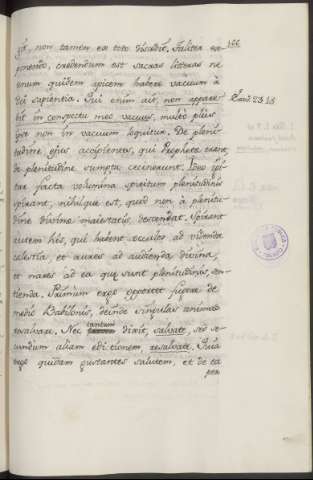 gä, non tamen ea toto discedis. Taliter ex-
ponendo, credendum est sacras litteras ne
unum quidem apicem habere vacuum à
Dei sapientia. Qui enim ait, non appare-
bit in conspectu meo vacuus, multo plus
ipse non in vacuum loquitur. De pleni-
tudine ejus accipientes, qui Prophetæ erant,
de plenitudine sumpta cecinerunt. Ideo ipsi-
tra sacra volumina spiritum plenitudinis
spirant, nihilque est, quod non à plenitu-
dine divinæ maiestatis descendat. Spirant
autem his, qui habent oculos ad videnda
celestia, et aures ad audienda divina,
et nares ad ea quæ sunt plenitudinis, sen-
tienda. Primum ergo oportet fugere de
medio Babilonis, deinde singulas animas
resalvari. Nec tantum dixit, salvate, sed se-
cundum aliam editionem, resalvate. Quia
ergo quidam gustantes salutem, et de ea
166
Exod. 23. 15